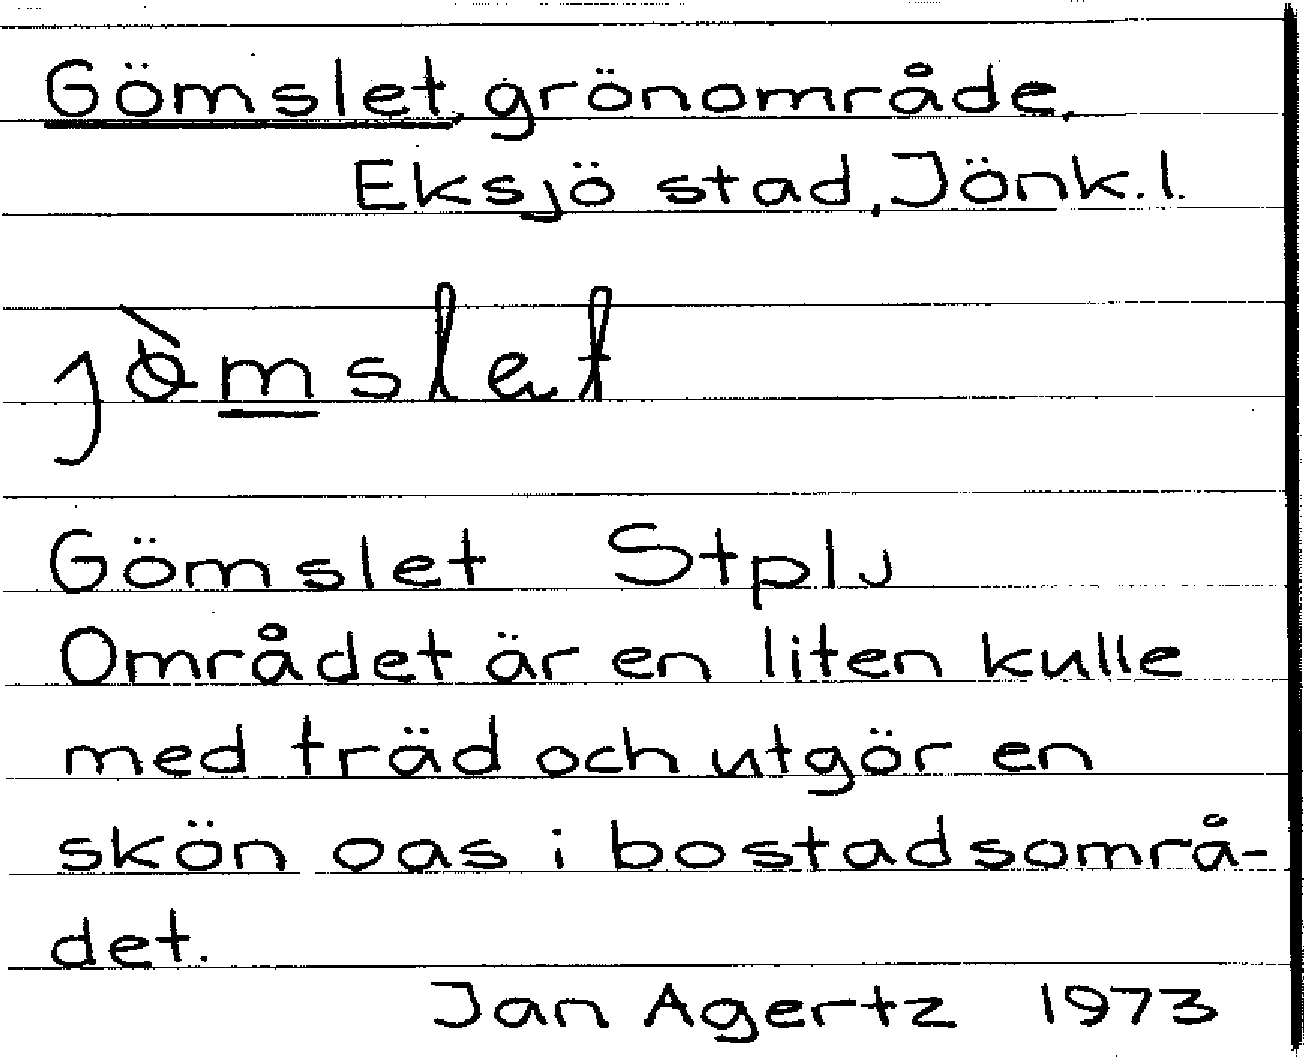 Gömslet, grönområde,
Eksjö stad, Jönk.l.
jò̀mslet
Gömslet Stplj
Området är en liten kulle
med träd och utgör en
skön oas i bostadsområ-
det.
Jan Agertz 1973